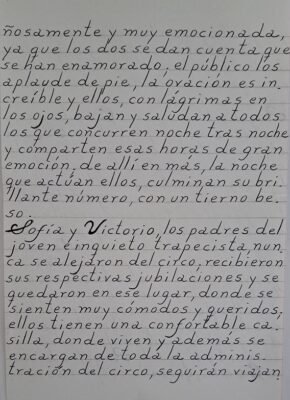 ñosamente y muy emocionada,
ya que los dos se dan cuenta que
se han enamorado, el público los
aplaude de pie, la ovación es in_
creíble y ellos, con lágrimas en
los ojos, bajan y saludan a todos
los que concurren noche tras noche
y comparten esas horas de gran
emoción, de allí en más, la noche
que actúan ellos, culminan su bri_
llante número, con un tierno be_
so.
Sofía y Victorio, los padres del
joven e inquieto trapecista, nun_
ca se alejaron del circo, recibieron
sus respectivas jubilaciones y se
quedaron en ese lugar, donde se
sienten muy cómodos y queridos,
ellos tienen una confortable ca_
silla, donde viven y además se
encargan de toda la adminis_
tración del circo, seguirán viajan_